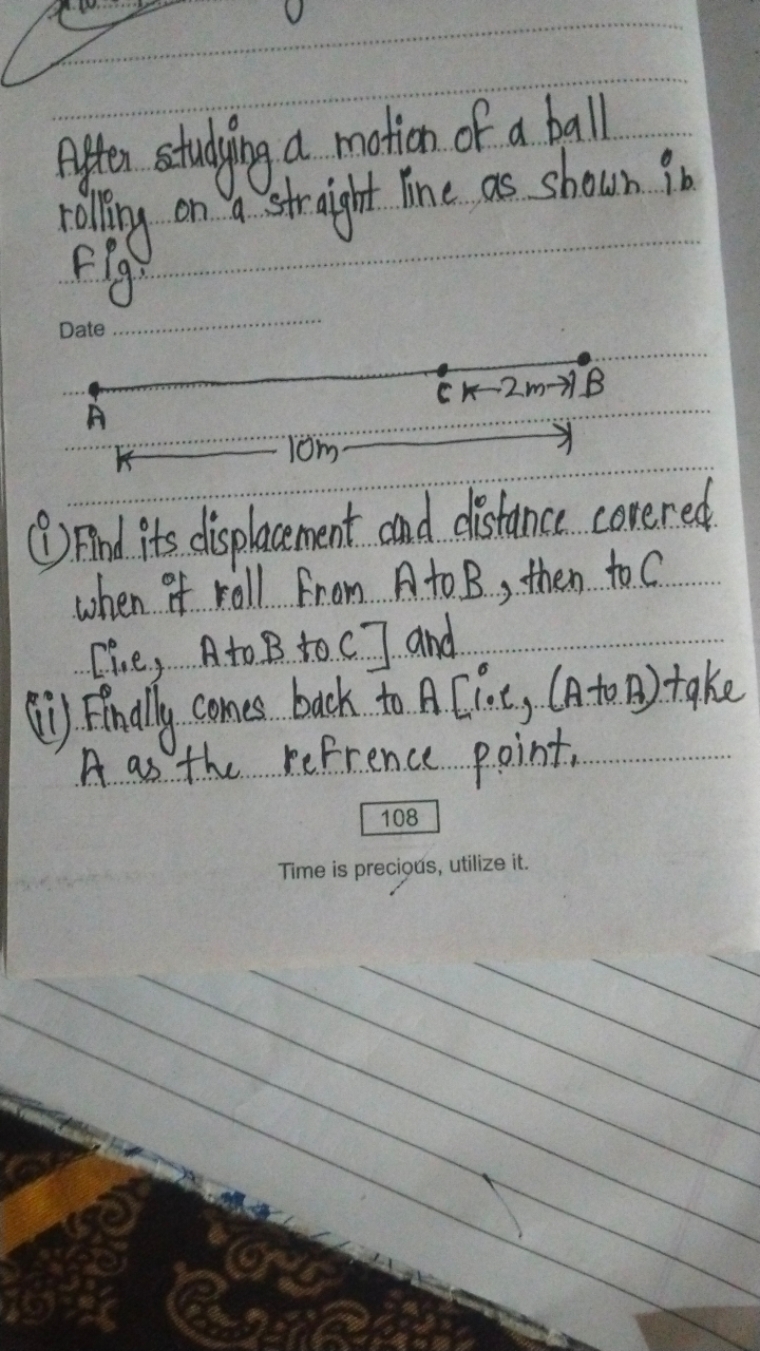 After studying a motion of a ball
rolling on a straight line as shown in
Fig.
Date
A C 2m B
10m
(i) Find its displacement and distance covered
when it roll from A to B, then to C
[i.e, A to B to C] and
(ii) Finally comes back to A [i.e, (A to A) take
A as the refrence point.
108
Time is precious, utilize it.